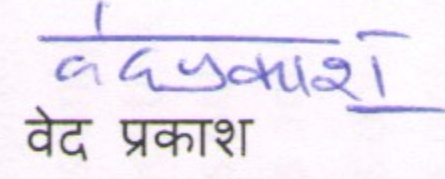 वेदप्रकाश
वेद प्रकाश